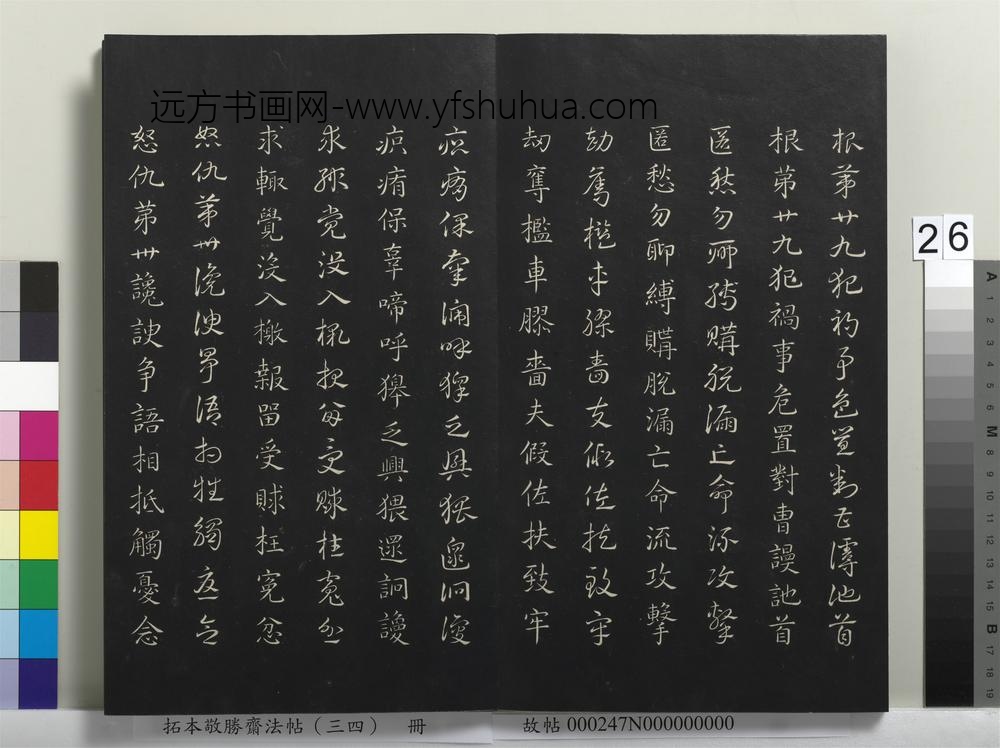 远方书画网-www.yfshuhua.com
根第廿九犯禍事危置對曹謾訑首
根第廿九犯禍事危置對曹謾訑首
匿愁勿聊縛購脫漏亡命流攻擊
匿愁勿聊縛購脫漏亡命流攻擊
劫奪檻車膠嗇夫假佐扶致牢
劫奪檻車膠嗇夫假佐扶致牢
疻痏保辜啼呼獋乏興猥逮詗讂
疻痏保辜啼呼獋乏興猥逮詗讂
求輒覺没入檄報留受賕枉冤忿
求輒覺没入檄報留受賕枉冤忿
怒仇第卅讒諛争語相抵觸憂念
怒仇第卅讒諛争語相抵觸憂念
26
A 1 2 3 4 5 6 M 8 9 10 11 12 13 14 15 B 17 18 19
拓本敬勝齋法帖（三四） 冊
故帖 000247N000000000